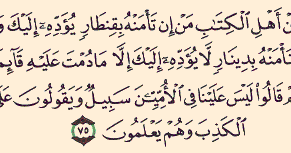 أَهْلِ ٱلْكِتَٰبِ مَنْ إِن تَأْمَنْهُ بِقِنطَارٍ يُؤَدِّهِۦٓ إِلَيْكَ
تَأْمَنْهُ بِدِينَارٍ لَّا يُؤَدِّهِۦٓ إِلَيْكَ إِلَّا مَا دُمْتَ عَلَيْهِ
قَالُوا۟ لَيْسَ عَلَيْنَا فِى ٱلْأُمِّيِّـۧنَ سَبِيلٌ وَيَقُولُونَ
ٱلْكَذِبَ وَهُمْ يَعْلَمُونَ ٧٥